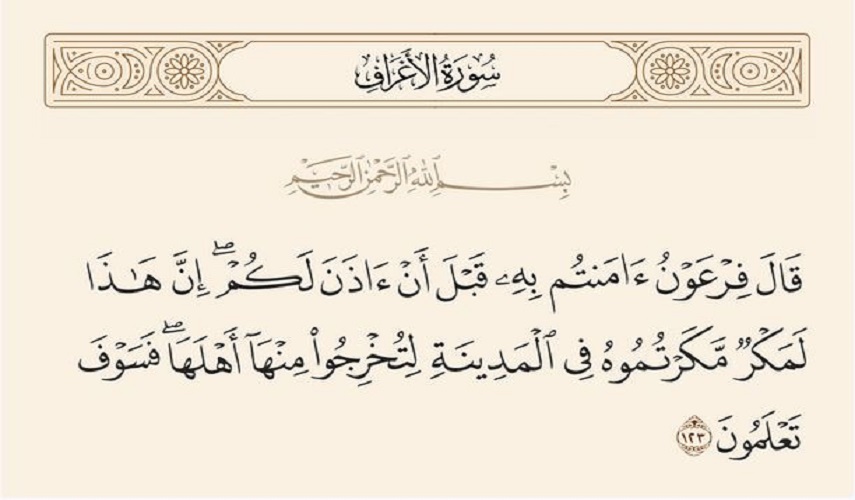 سُورَةُ الْأَعْرَافِ
بِسْمِ ٱللَّهِ ٱلرَّحْمَٰنِ ٱلرَّحِيمِ
قَالَ فِرْعَوْنُ ءَامَنتُم بِهِۦ قَبْلَ أَنْ ءَاذَنَ لَكُمْ ۖ إِنَّ هَـٰذَا
لَمَكْرٌ مَّكَرْتُمُوهُ فِى ٱلْمَدِينَةِ لِتُخْرِجُوا۟ مِنْهَآ أَهْلَهَا ۖ فَسَوْفَ
تَعْلَمُونَ ١٢٣